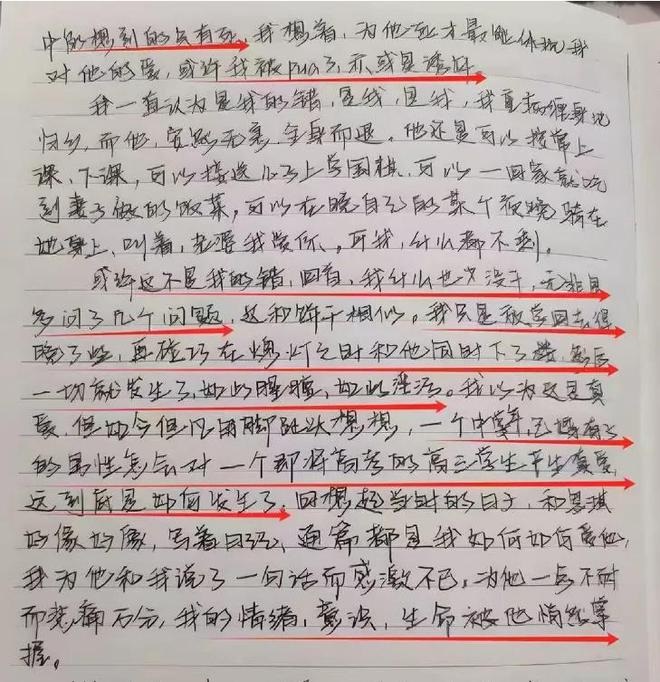 中能想到的只有死,我想着,为他死才最能体现我
对他的爱,或许我被pua了,亦或是诱奸。
我一直认为是我的错,是我,是我,我重病缠身地
归乡,而他,安然无恙,全身而退。他还是可以按常上
课,下课,可以接送儿子上学围棋,可以一回家就吃
到妻子做的饭菜,可以在晚自习的某个夜晚骑在
她身上,叫着,老婆我爱你。可我,什么都不剩。
或许这不是我的错,回首,我什么也没干,无非是
多问了几个问题,这和饼干相似。我只是放学回去得
晚了些,再碰巧在熄灯之时和他同时下了楼,然后
一切就发生了,如此朦胧,如此淫秽。我以为这是真
爱,但如今但凡用脚趾头想想,一个中年,已婚有子
的男性怎会对一个即将高考的高三学生产生真爱,
这到底是如何发生了,回想起当时的日子,和思琪
好像好像,写着日记,通篇都是我如何如何爱他,
我为他和我说了一句话而感激不已,为他一点不耐
而悲痛万分,我的情绪,意识,生命被他悄然掌
握。